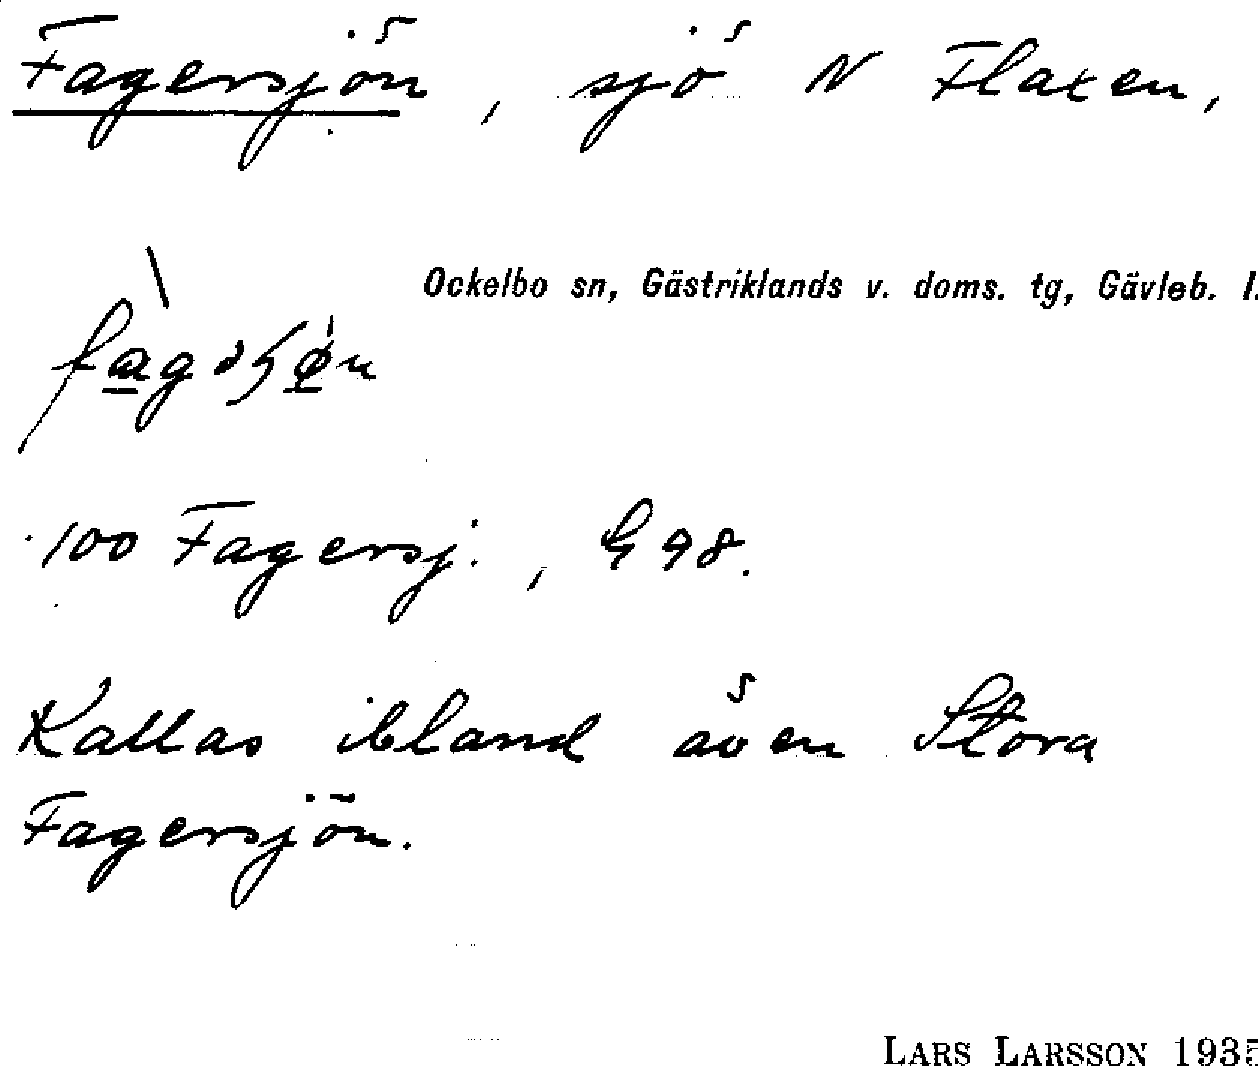 Fagersjön, sjö N Flaxen,
Ockelbo sn, Gästriklands v. doms. tg, Gävleb. l.
100 Fagersj., G 98.
Kallas ibland även Stora
Fagersjön.
LARS LARSSON 1935